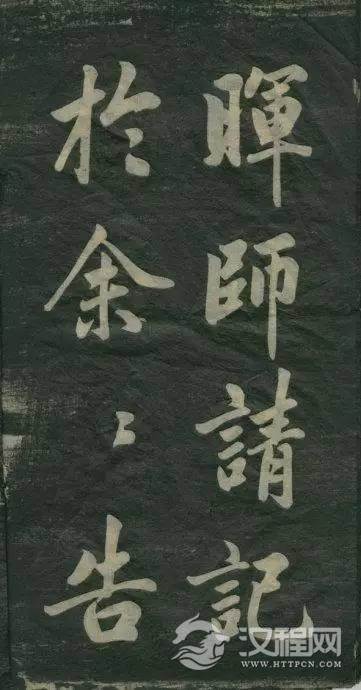 暉師請記
於余〻告
汉程网
WWW.HTTPCN.COM